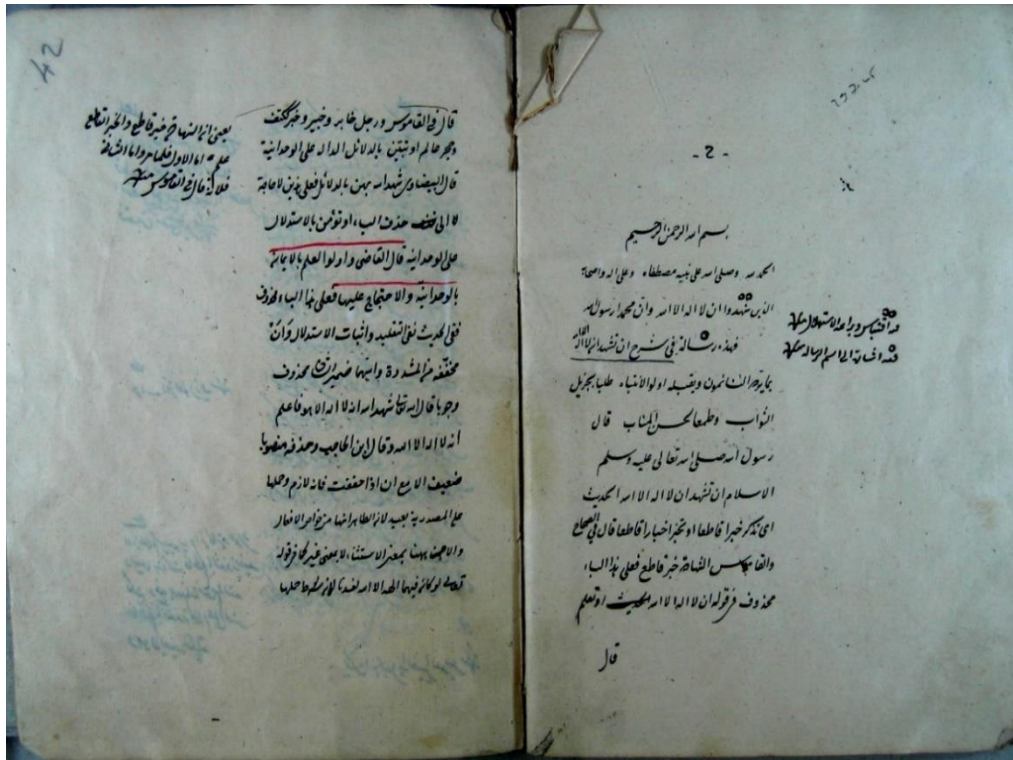 - 2 -
بسم الله الرحمن الرحيم
الحمد لله وصلى الله على نبيه مصطفاه وعلى اله واصحابه
الذين شهدوا ان لا اله الا الله وان محمدا رسول الله
فهذه رسالة في شرح ان تشهد ان لا اله الا الله
النائمون ويقبله اولوا الانتباه طلبا لجزيل
الثواب وطمعا لحسن المئاب قال
رسول الله صلى الله تعالى عليه وسلم
الاسلام ان تشهد ان لا اله الا الله الحديث
اى تذكر خبرا قاطعا او تخبر اخبارا قاطعا قال في الصحاح
والقاموس الشهادة خبر قاطع فعلى هذا الباء
محذوف في قوله ان لا اله الا الله الحديث او تعلم
قال
فيه اقتباس وبراعة الاستهلال منه
فيه اشارة الى اسم الرسالة منه
42
قال في القاموس ورجل خابر وخبير وخبر ككتف
وحجر عالم او تبين بالدلائل الداله على الوحدانية
قال البيضاوى شهد الله بين بالدلائل فعلى هذين لا حاجة
لا الى حذف الباء او تؤمن بالاستدلال
على الوحدانية قال القاضى واولوا العلم بالايمان
بالوحدانية والاحتجاج عليها فعلى هذا الباء محذوف
ففى الحديث نفى التقليد واثبات الاستدلال وان
مخففة من المشددة واسمها ضمير الشان محذوف
وجوبا قال الله تعالى شهد الله انه لا اله الا هو فاعلم
انه لا اله الا الله وقال ابن الحاجب وحذفه منصوبا
ضعيف الا مع ان اذا خففت فانه لازم وحملها
على المصدرية بعيد لان الظاهر انها من خواص الافعال
والا ههنا بمعنى الاستثناء لا بمعنى غير كما في قوله
تعالى لو كان فيهما الهة الا الله لفسدتا لان شرط حملها
يعنى ان الشهادة خبر قاطع والخبر القاطع
علم اما الاول فلما مر واما الثانى
فلانه قال في القاموس منه